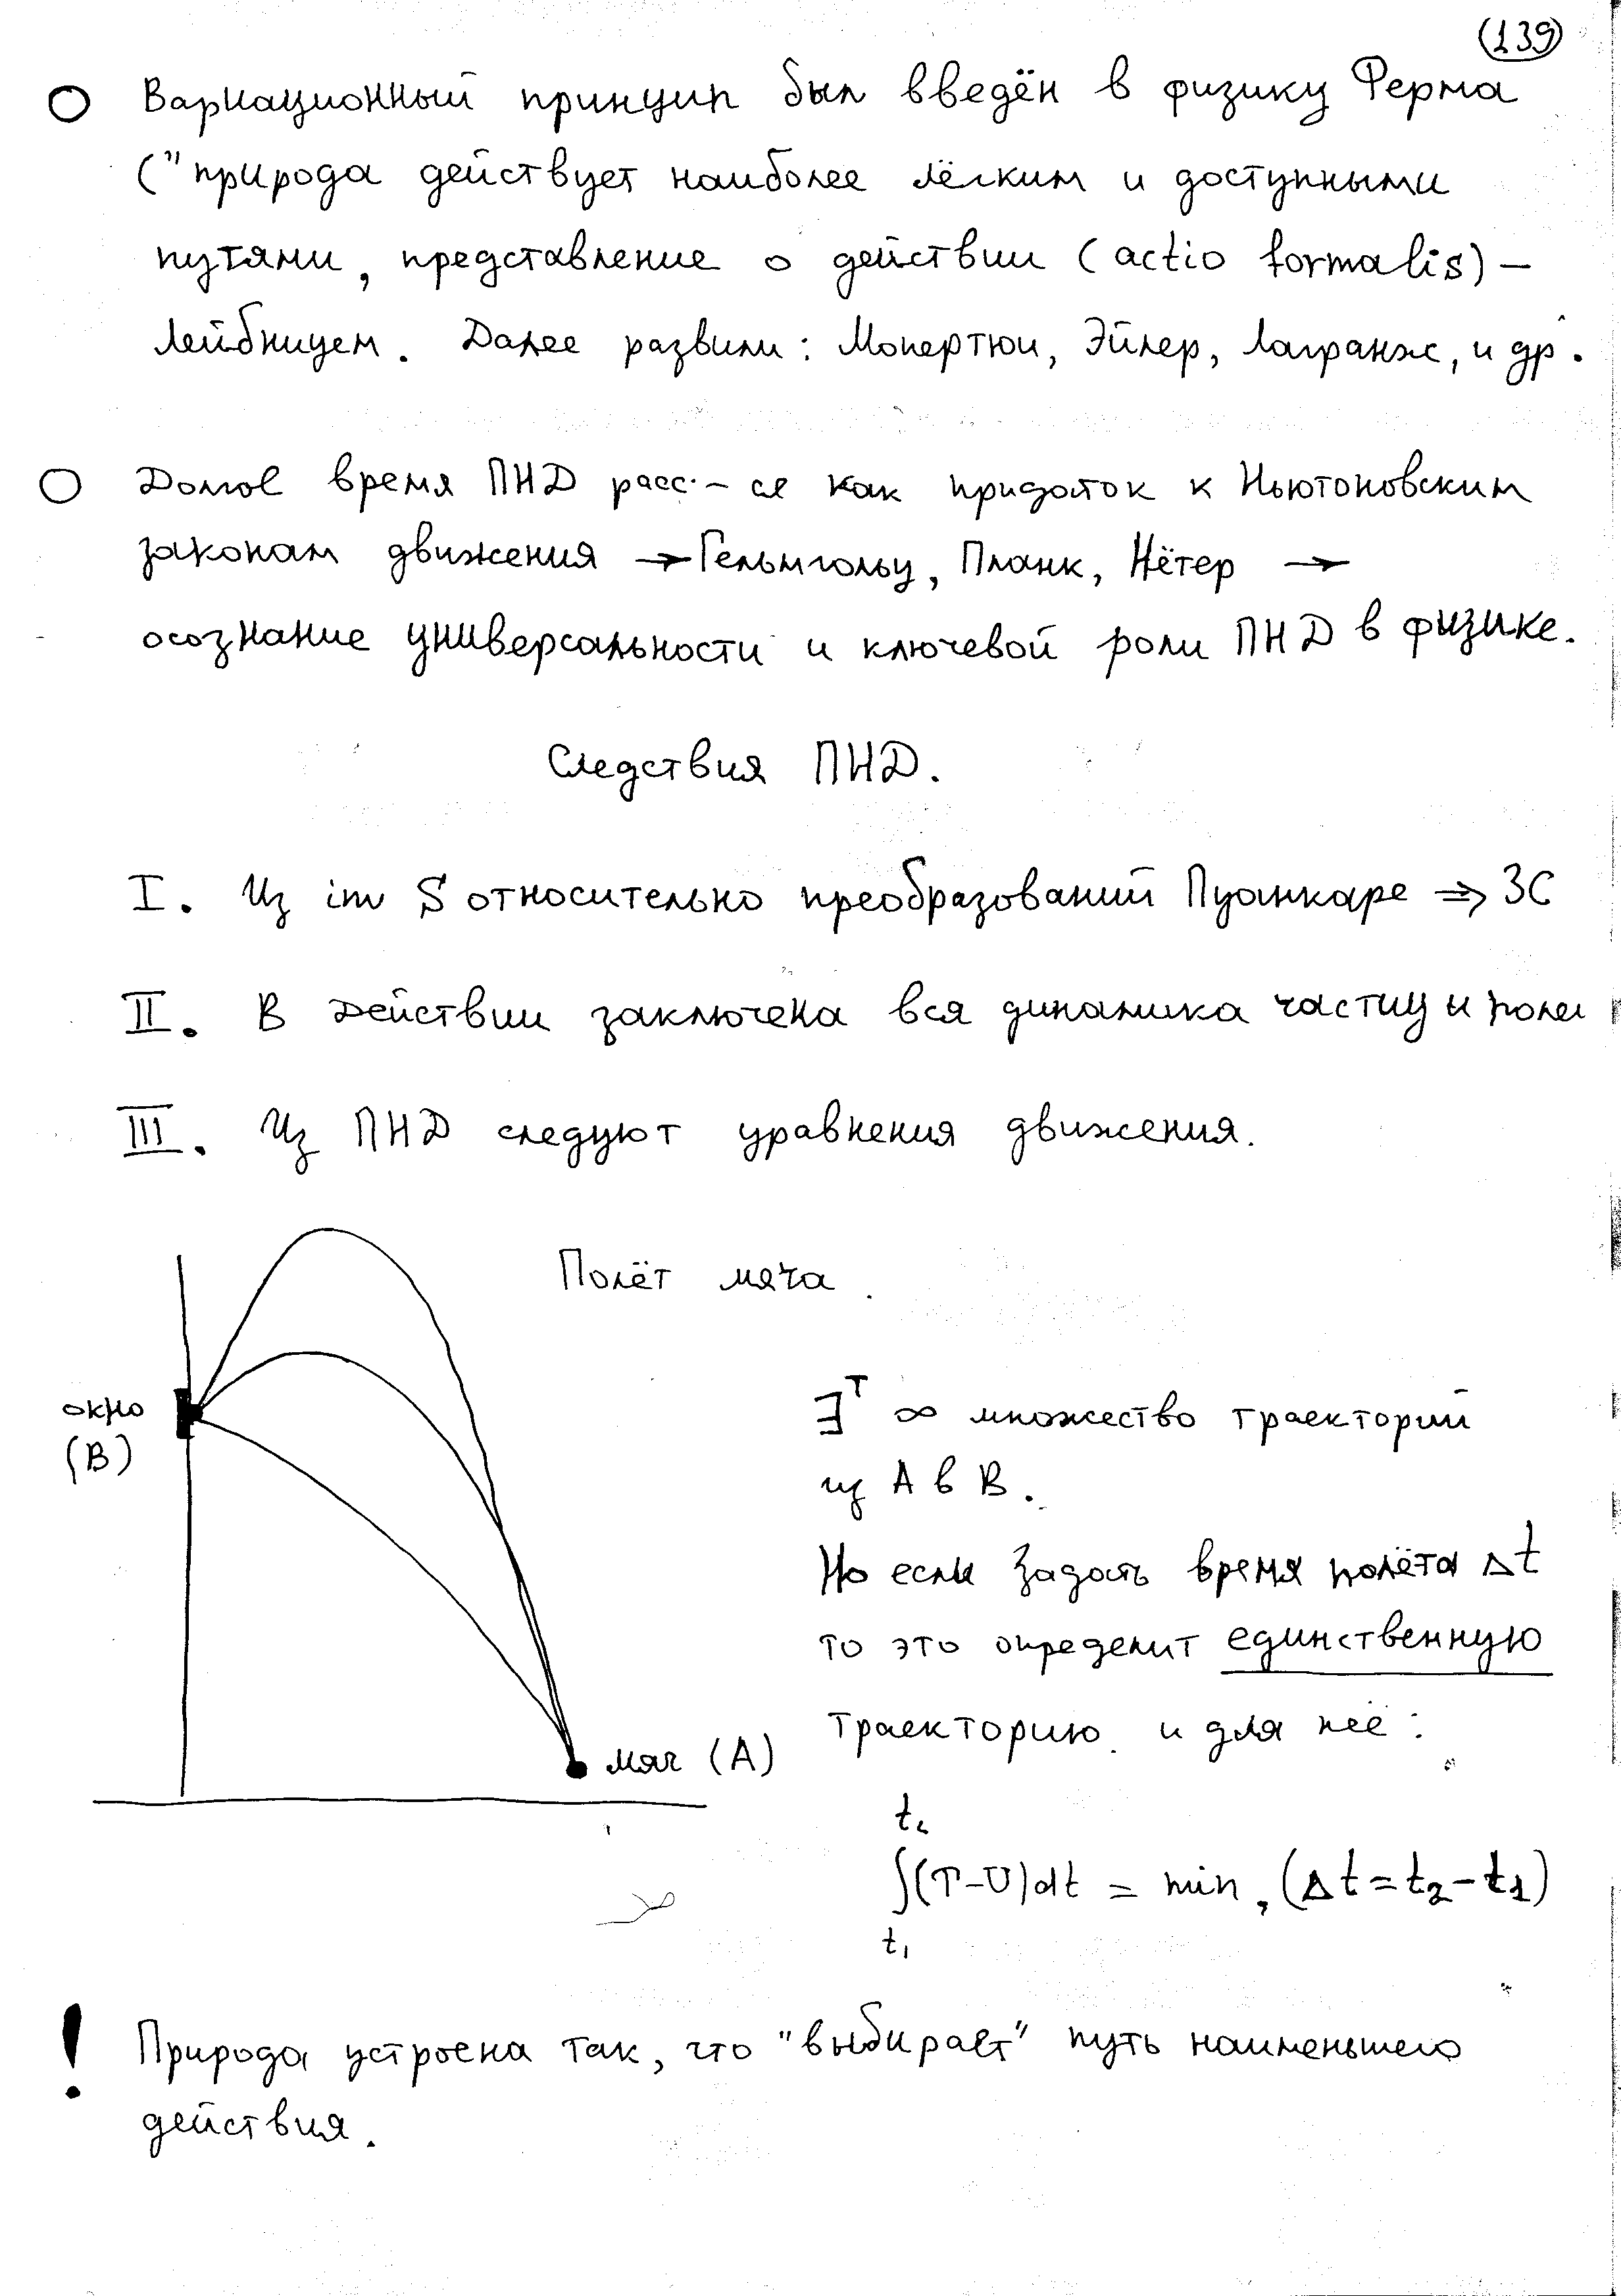 (139)
Вариационный принцип был введён в физику Ферма
("природа действует наиболее лёгким и доступными
путями, представление о действии (actio formalis) –
Лейбницем. Далее развили: Мопертюи, Эйлер, Лагранж, и др.
Долгое время ПНД расс.-ся как придаток к Ньютоновским
законам движения → Гельмгольц, Планк, Нётер →
осознание универсальности и ключевой роли ПНД в физике.
Следствия ПНД.
I. Из inv S относительно преобразований Пуанкаре ⇒ ЗС
II. В действии заключена вся динамика частиц и полей
III. Из ПНД следуют уравнения движения.
Полёт мяча.
окно
(В)
∃ᵀ ∞ множество траекторий
из А в В.
Но если задать время полёта Δt
то это определит единственную
траекторию и для неё:
мяч (А)
t₂
∫(T-U)dt = min, (Δt = t₂ - t₁)
t₁
! Природа устроена так, что "выбирает" путь наименьшего
действия.